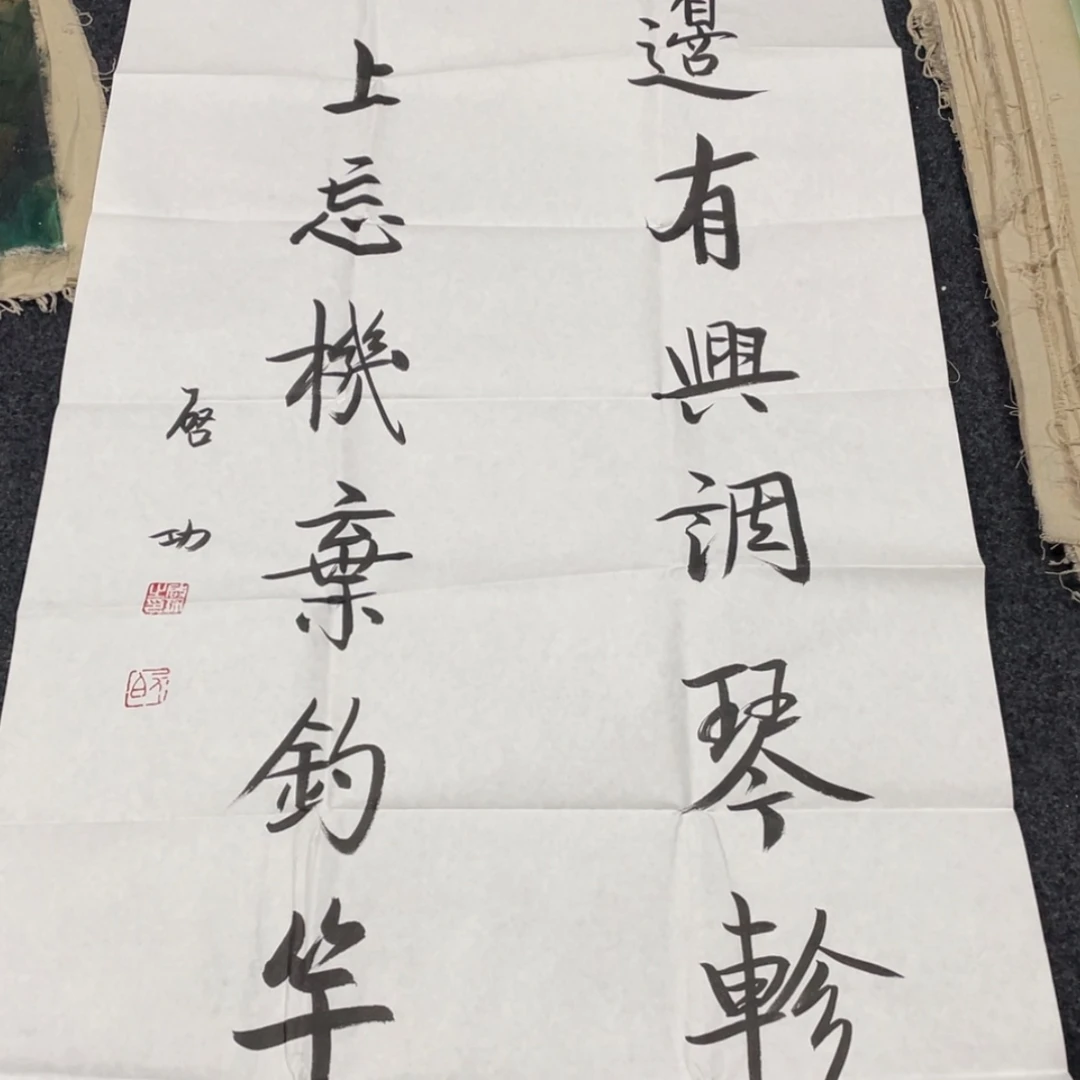 邊有興調琴軫
上忘機棄釣竿
啓功